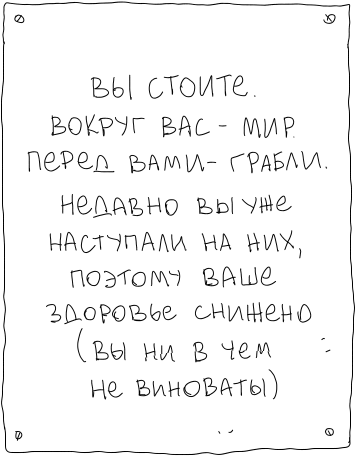 ВЫ СТОИТЕ.
ВОКРУГ ВАС - МИР.
ПЕРЕД ВАМИ- ГРАБЛИ.
НЕДАВНО ВЫ УЖЕ
НАСТУПАЛИ НА НИХ,
ПОЭТОМУ ВАШЕ
ЗДОРОВЬЕ СНИЖЕНО
(ВЫ НИ В ЧЕМ
НЕ ВИНОВАТЫ)